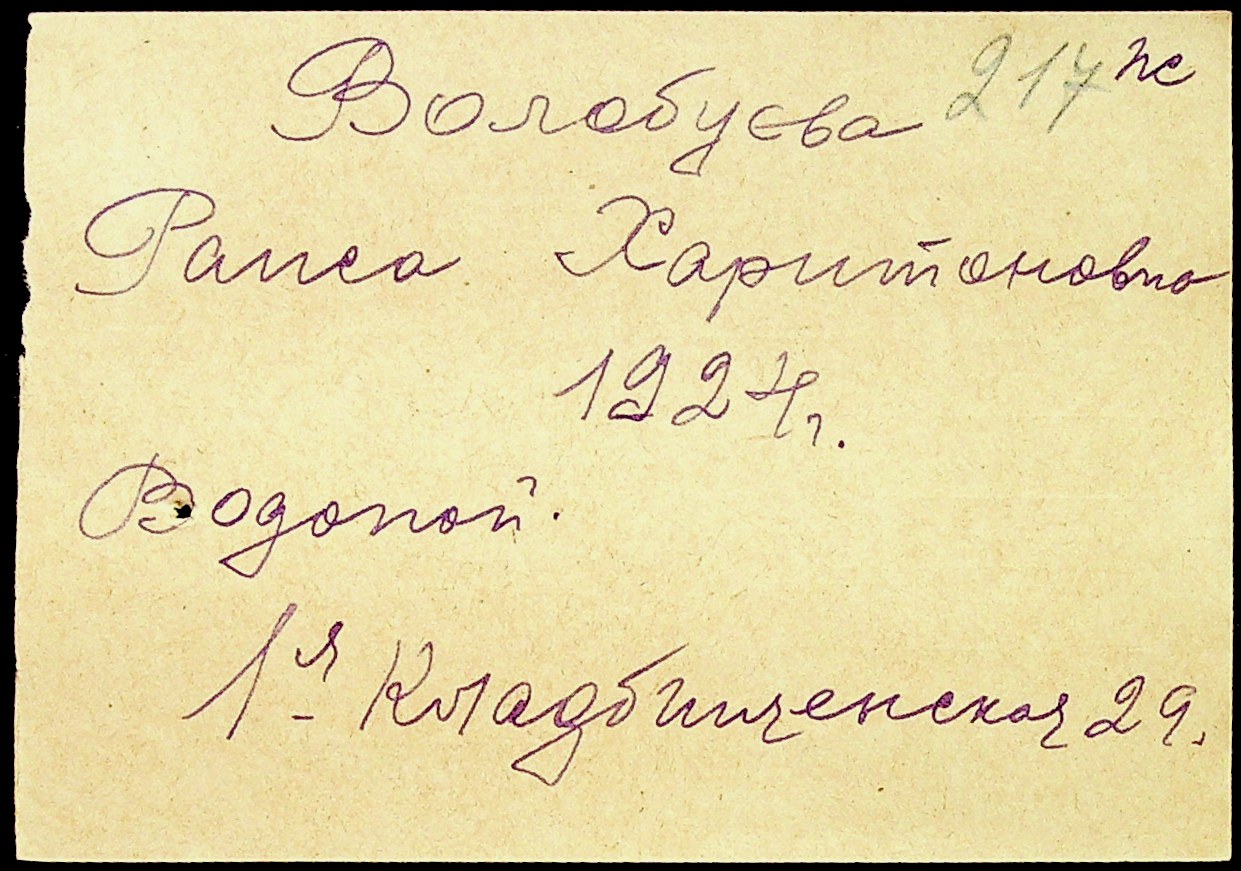 Волобуева 217 пс
Раиса Харитоновна
1924 г.
Водопой.
1я - Кладбищенская 29.